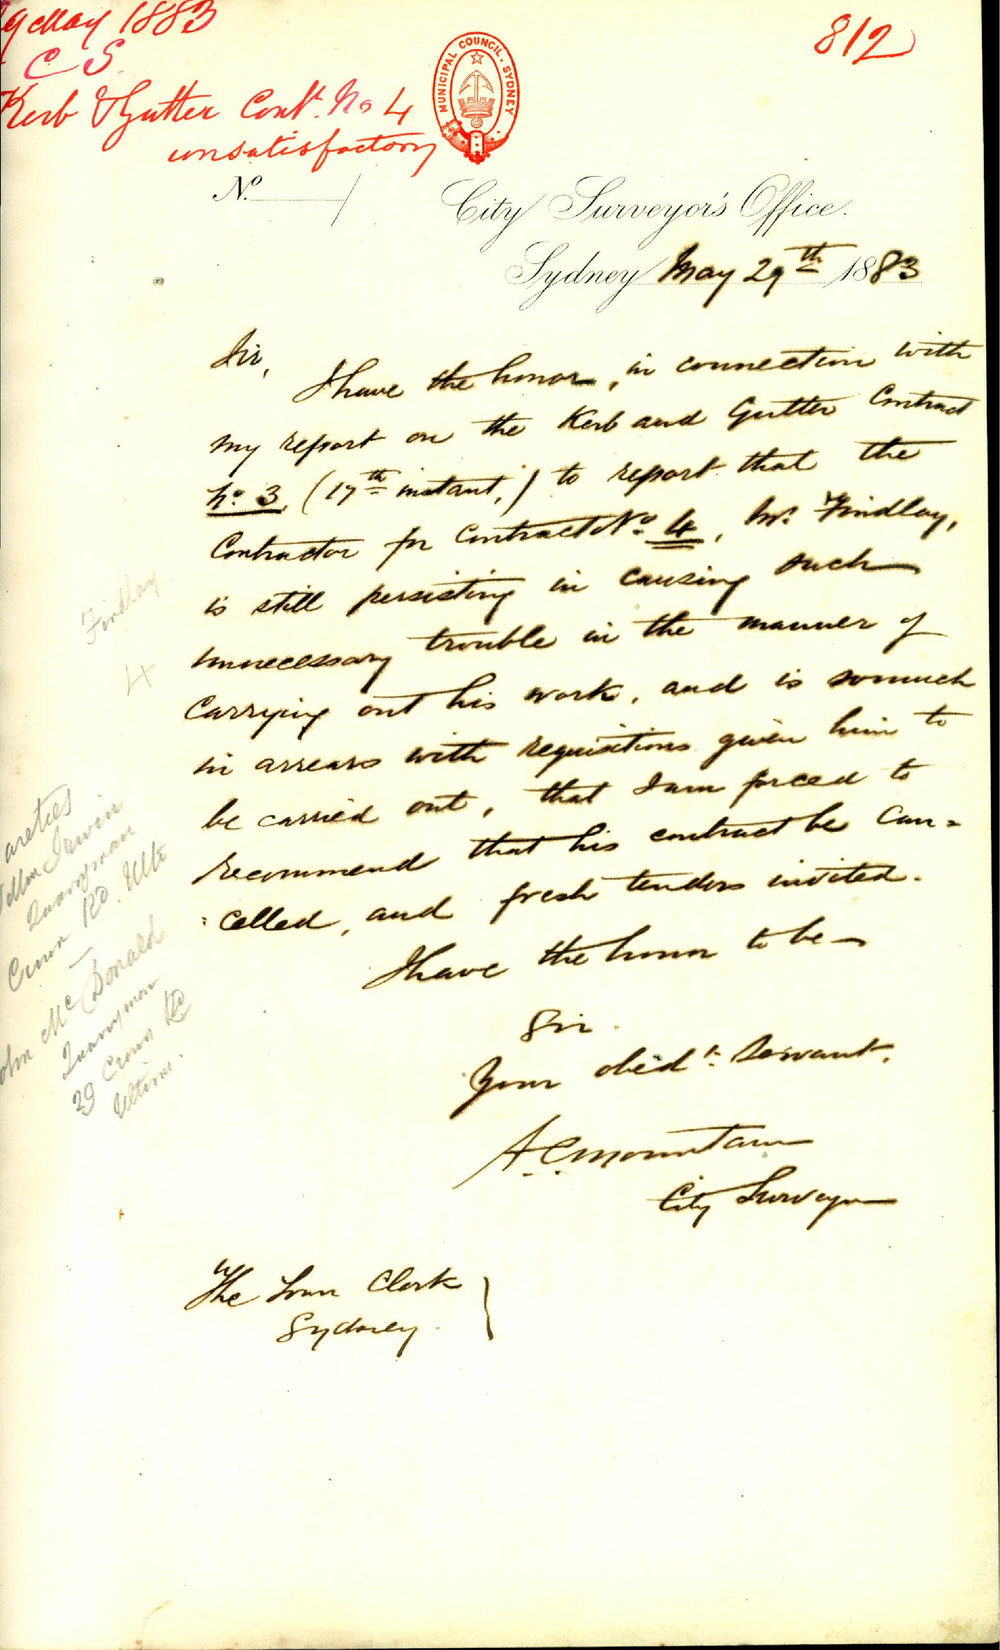 9 May 1883
C S.
Kerb & Gutter Cont. No 4
unsatisfactory
812
MUNICIPAL COUNCIL. SYDNEY
No.
City Surveyor's Office.
Sydney May 29th 1883
Sir,
I have the honor, in connection with
my report on the Kerb and Gutter Contract
No. 3, (17th instant,) to report that the
Contractor for Contract No. 4, Mr. Findlay,
is still persisting in causing such
unnecessary trouble in the manner of
carrying out his work, and is so much
in arrears with requisitions given him to
be carried out, that I am forced to
recommend that his contract be can=
:celled, and fresh tenders invited.
I have the honor to be
Sir.
Your obed't. Servant.
A. C. Mountain
City Surveyor
The Town Clerk
Sydney.
Findlay
4
areties
Irwin
Quarryman
Crown Rd. Ulti
John McDonald
Quarryman
29 Crown Rd
Ultimo.